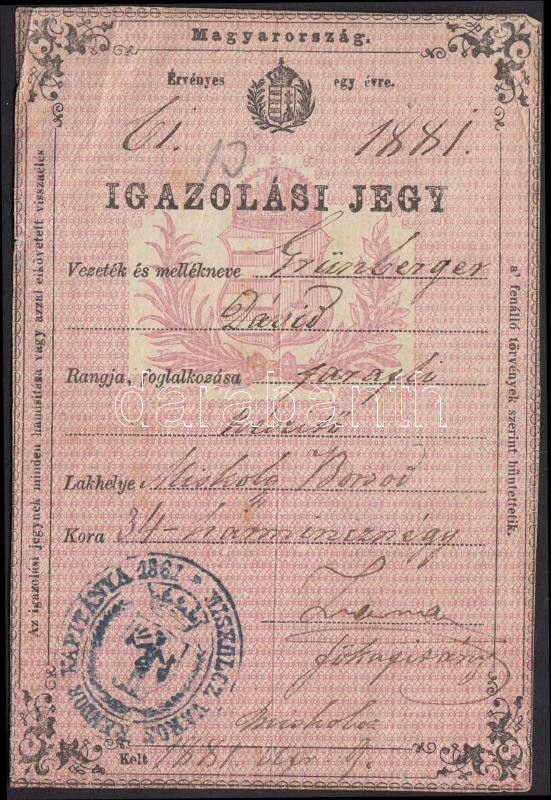 Magyarország.
Érvényes egy évre.
61. 1881.
10
IGAZOLÁSI JEGY
Vezeték és mellékneve Grünberger
Dávid
Rangja, foglalkozása
készitő
Lakhelye Miskolcz Borsod
Kora 34 harmincznégy
főkapitány
Miskolcz
Kelt 1881
Az igazolási jegynek minden hamisitása vagy azzal elkövetett visszaélés
a' fenálló törvények szerint büntettetik.
MISKOLCZ VÁROS RENDŐR KAPITÁNYA 1861
darabanth